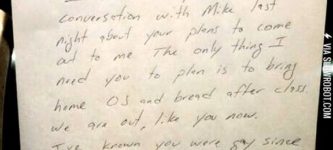 conversation with Mike last
night about your plans to come
out to me. The only thing I
need you to plan is to bring
home OJ and bread after class.
We are out, like you now.
I've known you were gay since
VIA SLOWROBOT.COM